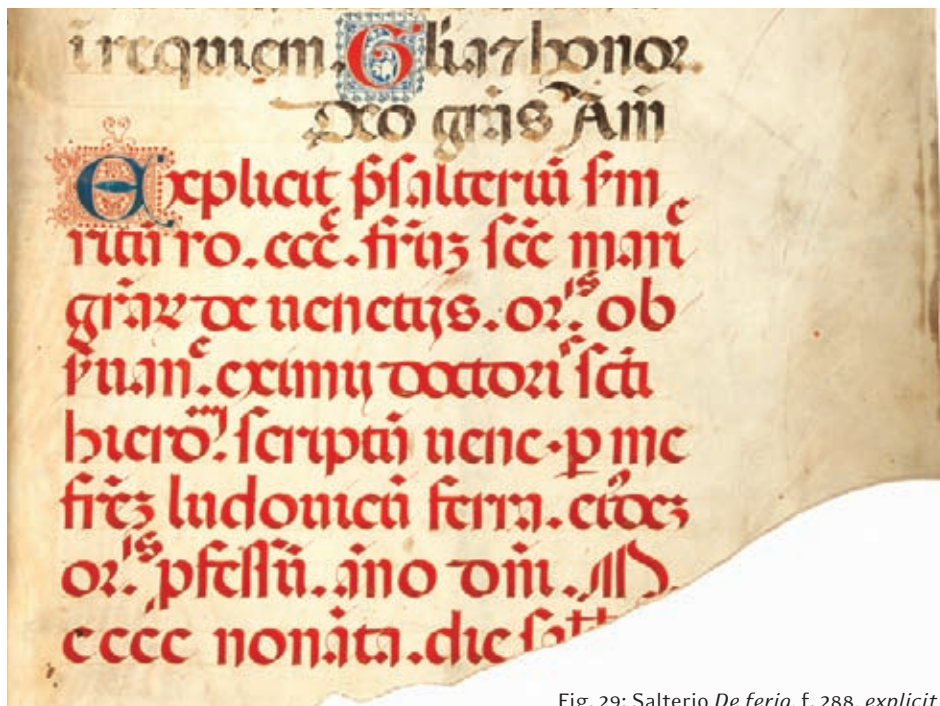 i requiem. Glia ⁊ honor.
Deo gr̃as Am̃
Explicit p̃salteriũ s̃m
ritũ ro. ccc̃. fr̃uʒ sc̃e mariᵉ
gr̃aꝝ de uenetijs. or.ⁱˢ ob
s̃uan.ᶜ eximij doctoriˢ sc̃ti
hiero.ᵐ scriptũ uene. ꝑ me
fr̃eʒ ludouicũ ferra. eiᵒdeʒ
or.ⁱˢ ꝓfessũ. ãno dñi. M.
cccc nonãta. die
Fig. 29: Salterio De feria, f. 288, explicit